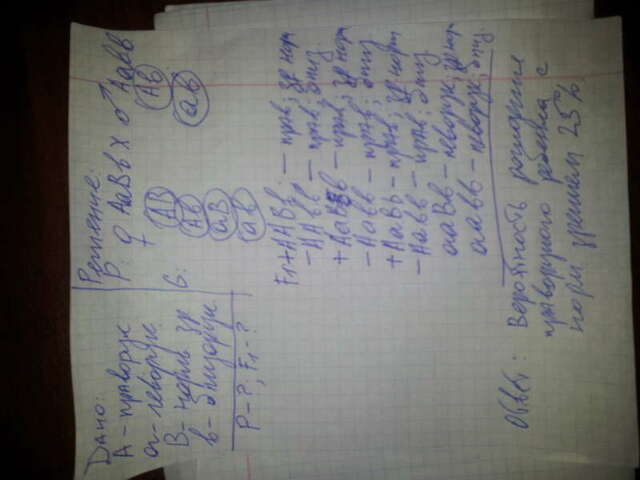 Дано:
А - праворук
а - леворук
В - норм зр
в - близорук
Р - ?, F1 - ?
Решение:
Р: ♀ АаВв х ♂ Аавв
G: АВ Ав
Ав ав
аВ
ав
F1: + ААВв - прав; зр норм
- ААвв - прав; близ
+ АаВв - прав; зр норм
- Аавв - прав; близ
+ АаВв - прав; зр норм
- Аавв - прав; близ
ааВв - леворук; зр норм
аавв - леворук; близ.
Ответ: Вероятность рождения
праворукого ребёнка с
норм зрением 25%.